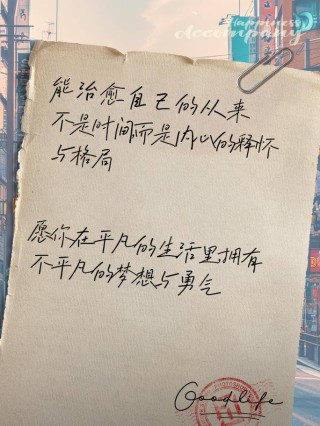 Happiness
Accompany
能治愈自己的从来
不是时间而是内心的释怀
与格局
愿你在平凡的生活里拥有
不平凡的梦想与勇气
Goodlife